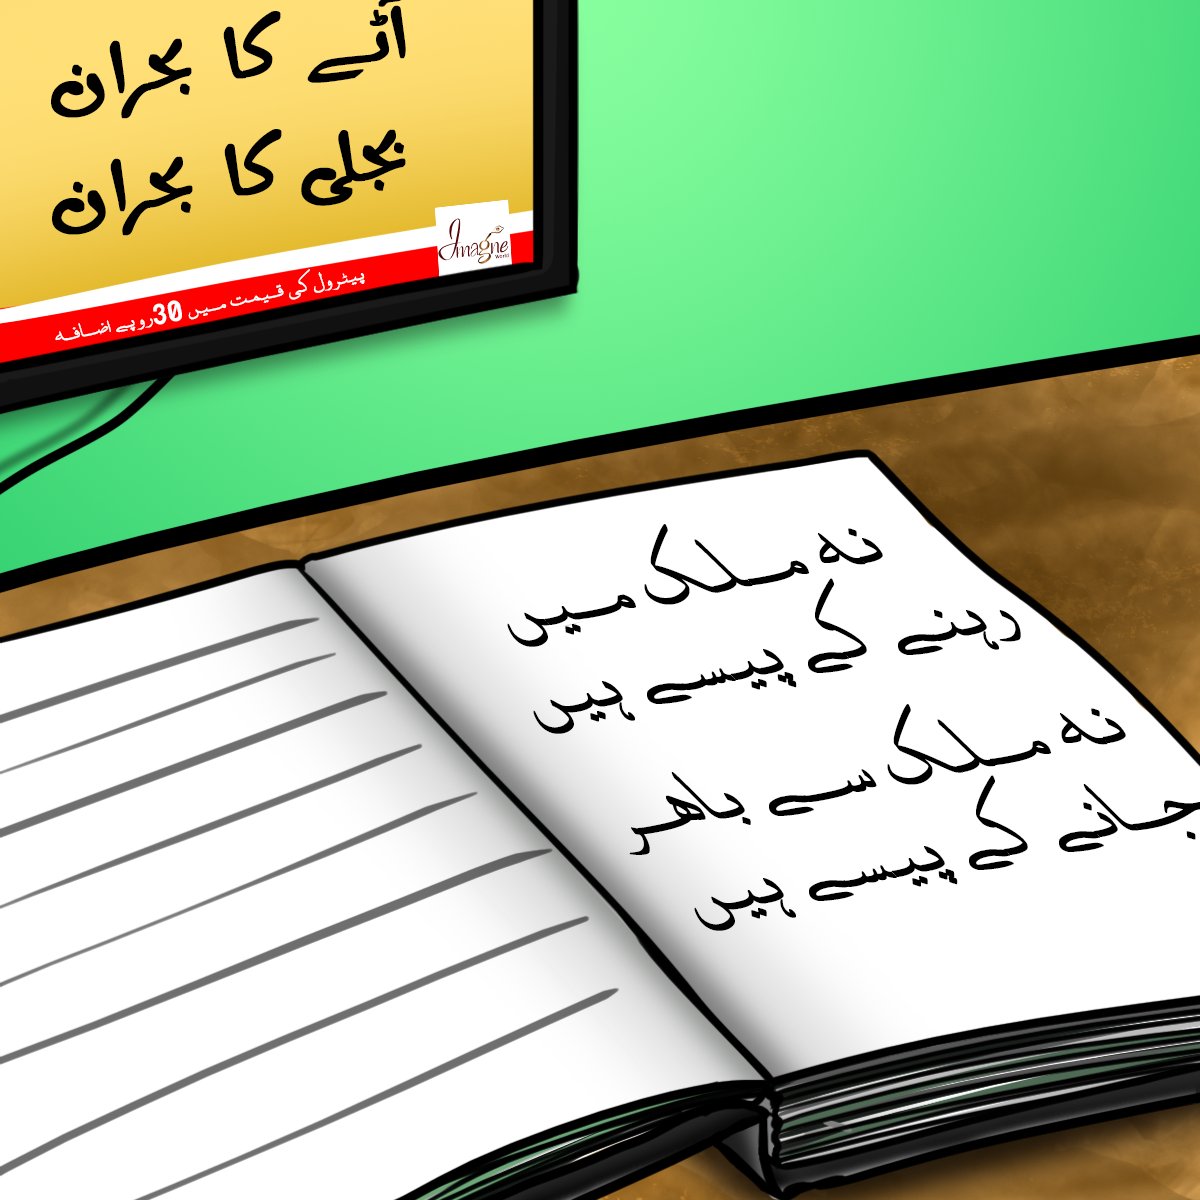 آٹے کا بحران
بجلی کا بحران
Imagne
World
پیٹرول کی قیمت میں 30روپے اضافہ
نہ ملک میں
رہنے کے پیسے ہیں
نہ ملک سے باھر
جانے کے پیسے ہیں